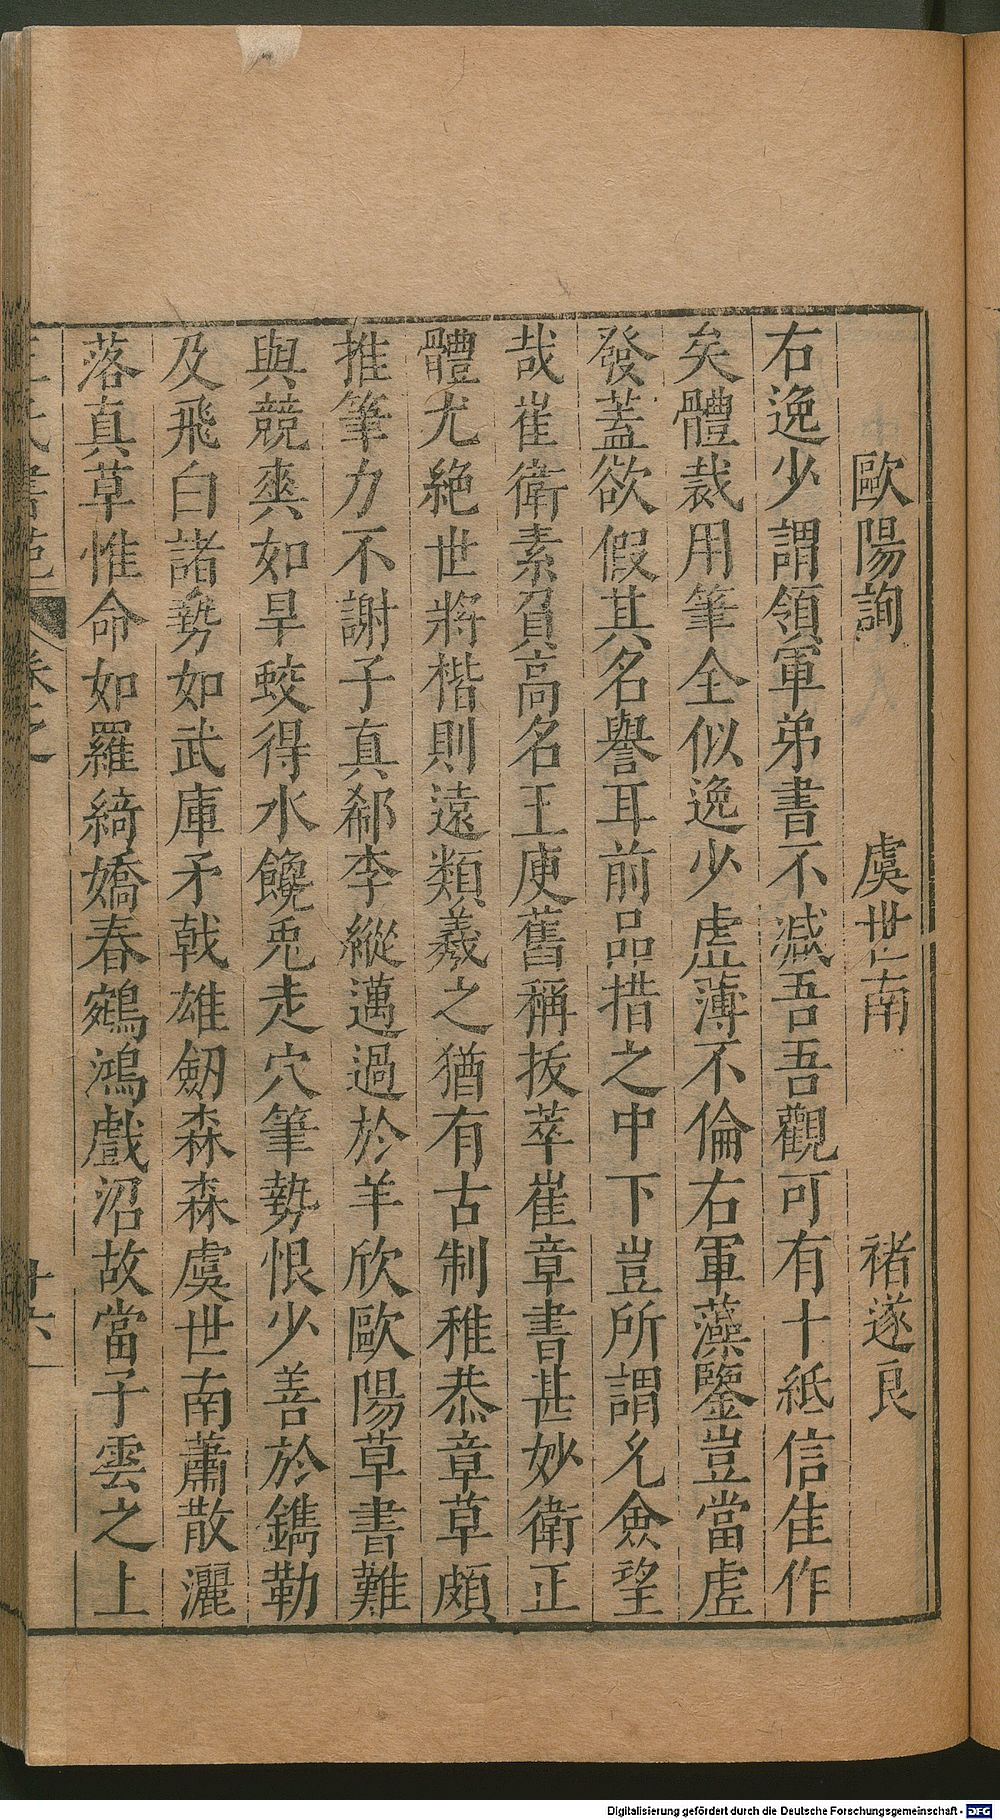 歐陽詢 虞世南 褚遂良
右逸少謂領軍弟書不減吾吾觀可有十紙信佳作
矣體裁用筆全似逸少虛薄不倫右軍藻鑒豈當虛
發蓋欲假其名譽耳前品措之中下豈所謂允僉望
哉崔衛素負高名王庾舊稱拔萃崔章書甚妙衛正
體尤絶世將楷則遠類羲之猶有古制稚恭章草頗
推筆力不謝子真郗李縱邁過於羊欣歐陽草書難
與競爽如旱蛟得水饞兎走穴筆勢恨少善於鐫勒
及飛白諸勢如武庫矛戟雄劒森森虞世南蕭散灑
落真草惟命如羅綺嬌春鵷鴻戲沼故當子雲之上
王氏書苑 卷之 十六
Digitalisierung gefördert durch die Deutsche Forschungsgemeinschaft - DFG